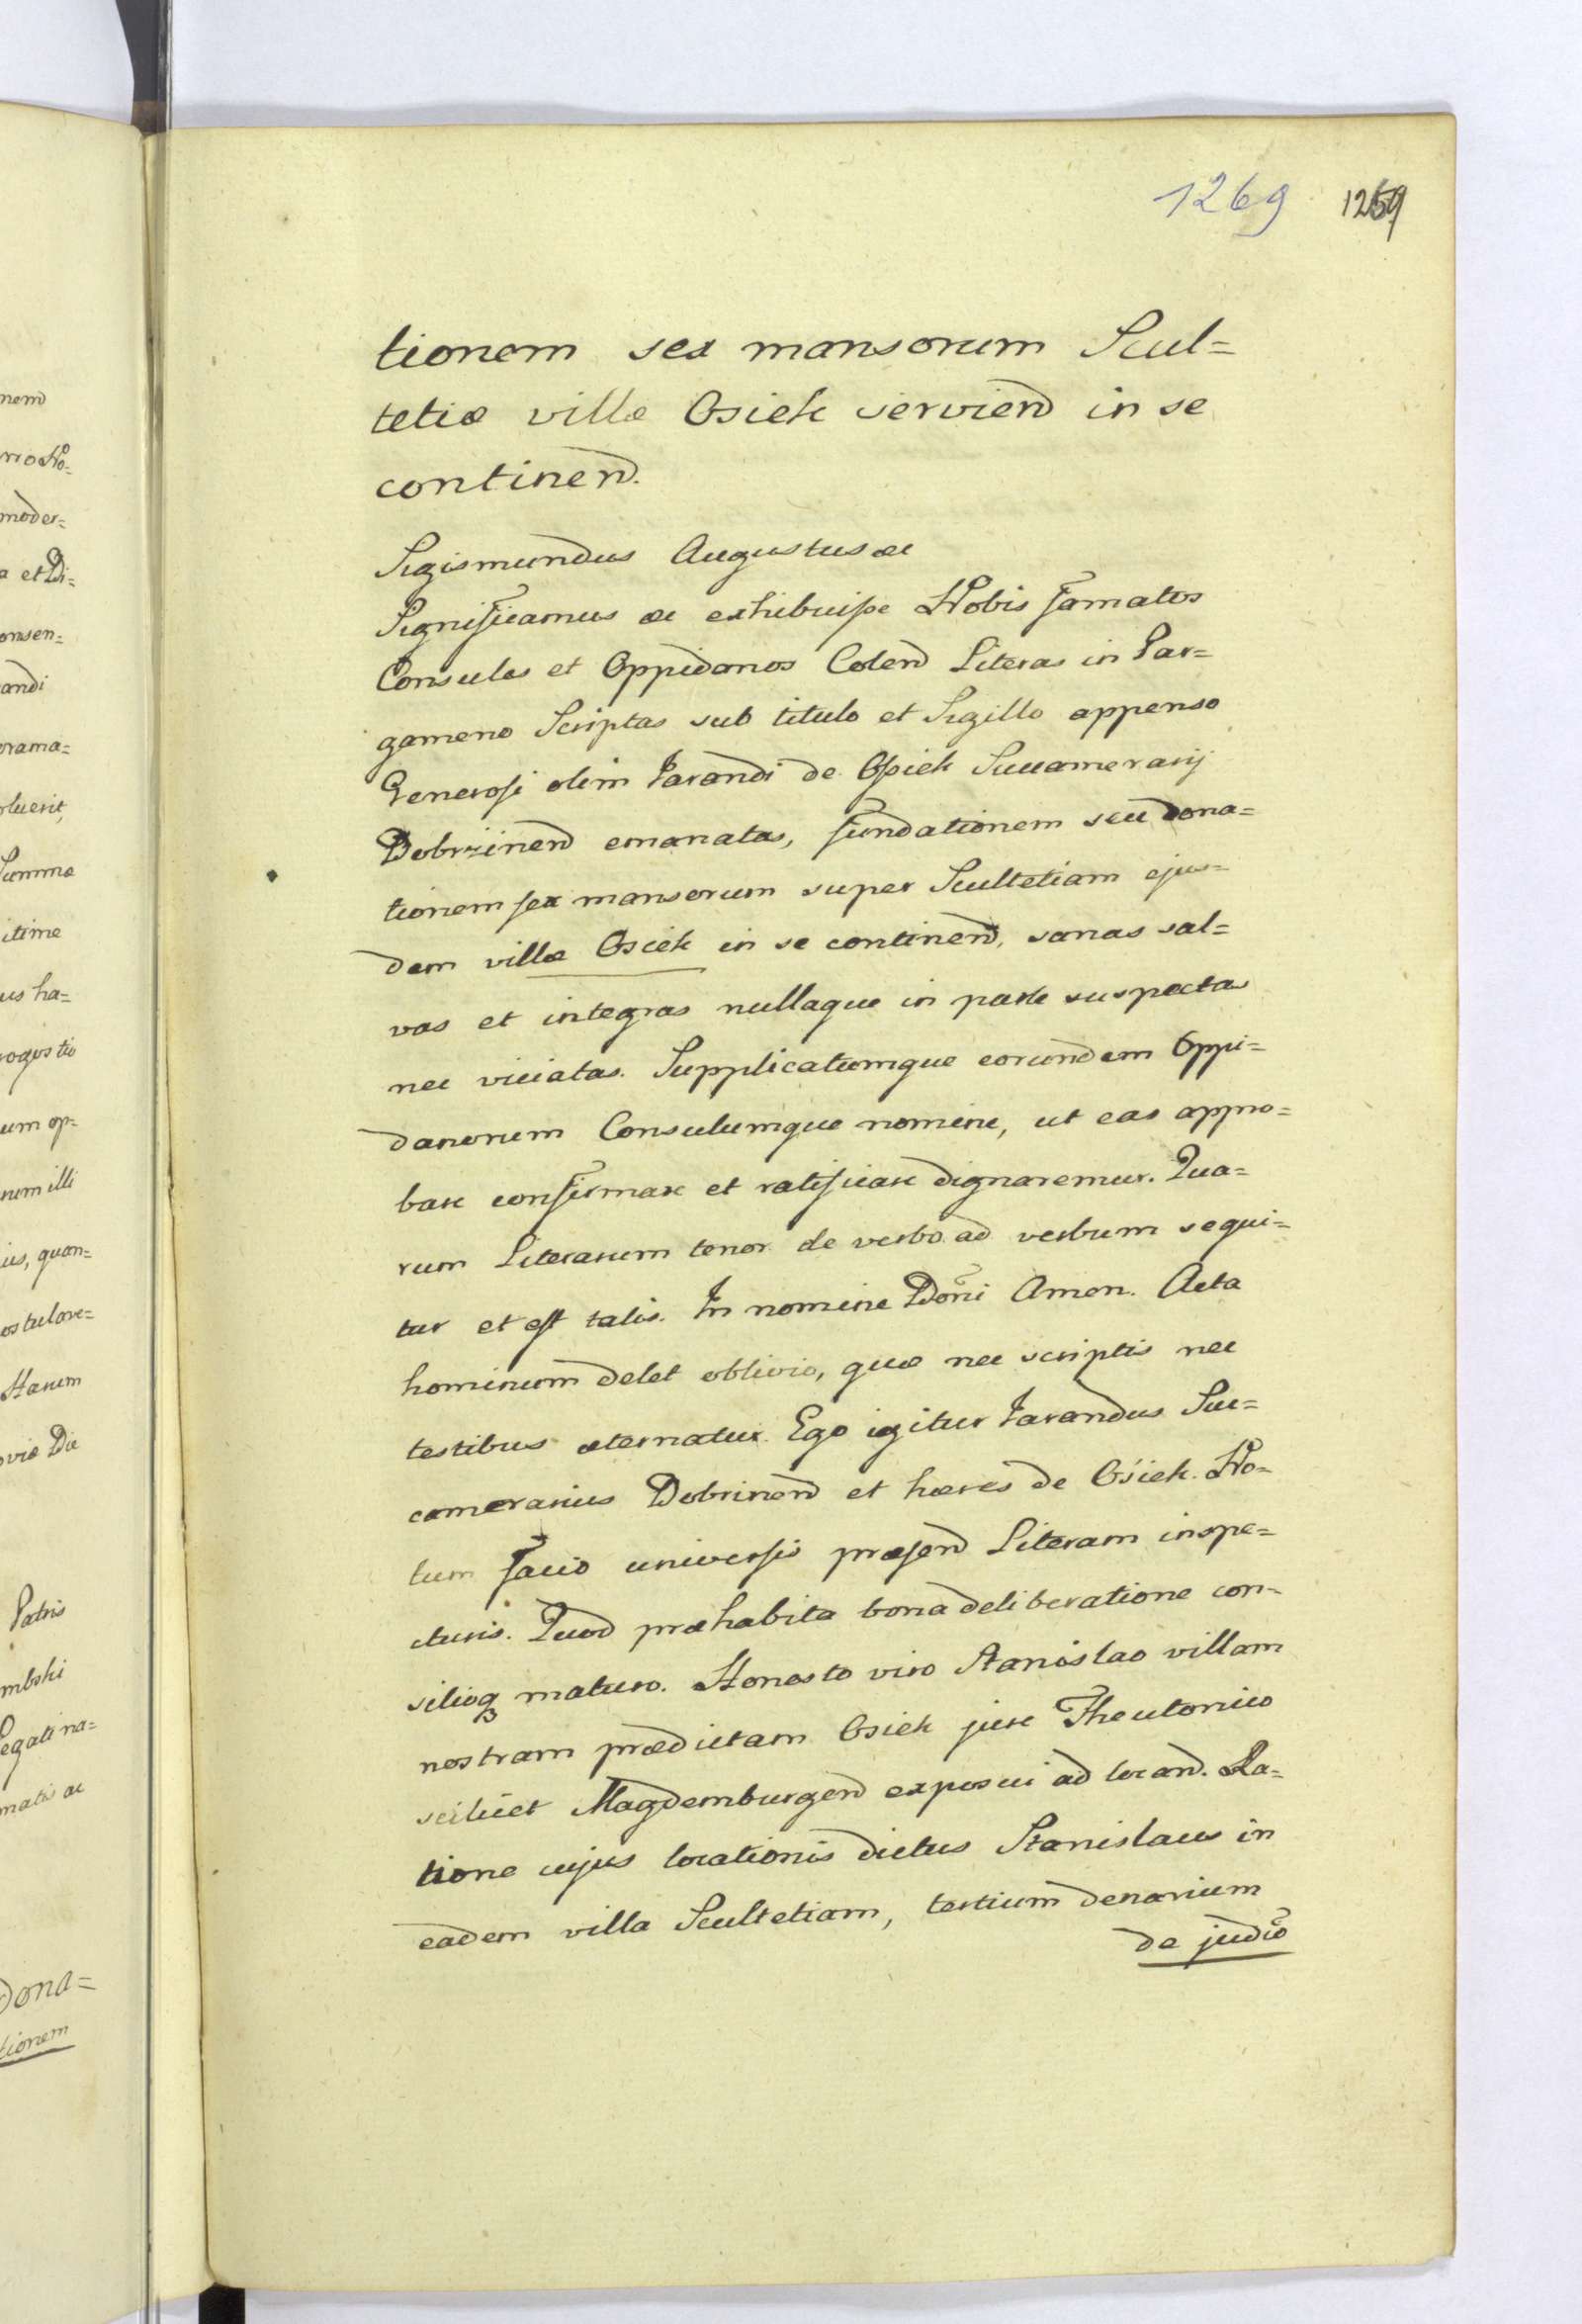 1269 1269
tionem sex mansorum Scul=
tetiæ villæ Osiek serviend in se
continend.
Sigismundus Augustus &c
Significamus &c exhibuisse Nobis famatos
Consules et Oppidanos Literas in Par=
gameno Scriptas sub titulo et Sigillo appenso
Generosi olim Jarandi de Osiek Succamerarij
Dobrzinend emanatas, fundationem seu dona=
tionem sex mansorum super Scultetiam ejus=
dem villæ Osiek in se continend, sanas sal=
vas et integras nullaque in parte suspectas
nec viciatas. Supplicatumque eorundem Oppi=
danorum Consulumque nomine, ut eas appro=
bare confirmare et ratificare dignaremur. Qua=
rum Literarum tenor de verbo ad verbum sequi=
tur et est talis. In nomine Dōni Amen. Acta
hominum delet oblivio, quæ nec scriptis nec
testibus æternatur. Ego igitur Jarandus Suc=
camerarius Dobrinend et hæres de Osiek. No=
tum facio universis præsend Literam inspe=
cturis. Quod præhabita bona deliberatione con=
silioq maturo. Honesto viro Stanislao villam
nostram prædictam Osiek jure Theutonico
scilicet Magdemburgend exposui ad locand. Ra=
tione cujus locationis dictus Stanislaus in
eadem villa Scultetiam, tertium denarium
de judio
nem
rro No=
moder=
a et Di=
onsen=
andi
orama=
oluerit,
Summa
itime
us ha=
um op=
rum illi
ius, quan=
ostulare=
Harum
Patris
mbski
Legati na=
matis ac
Dona=
tionem